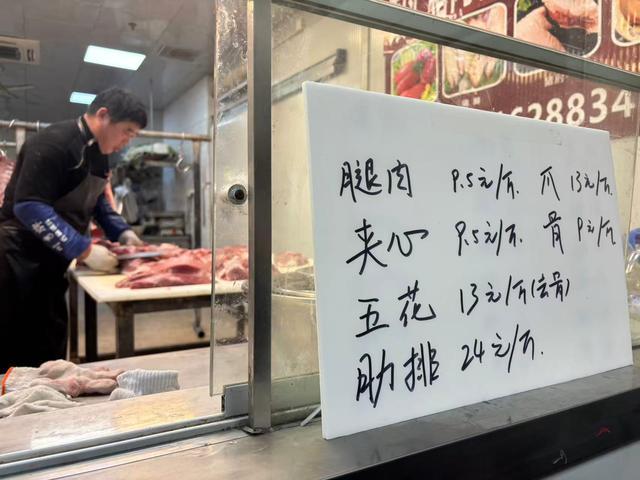 628834
腿肉 9.5元/斤. 爪 13元/斤.
夹心 9.5元/斤. 骨 9元/斤
五花 13元/斤(去骨)
肋排 24元/斤.